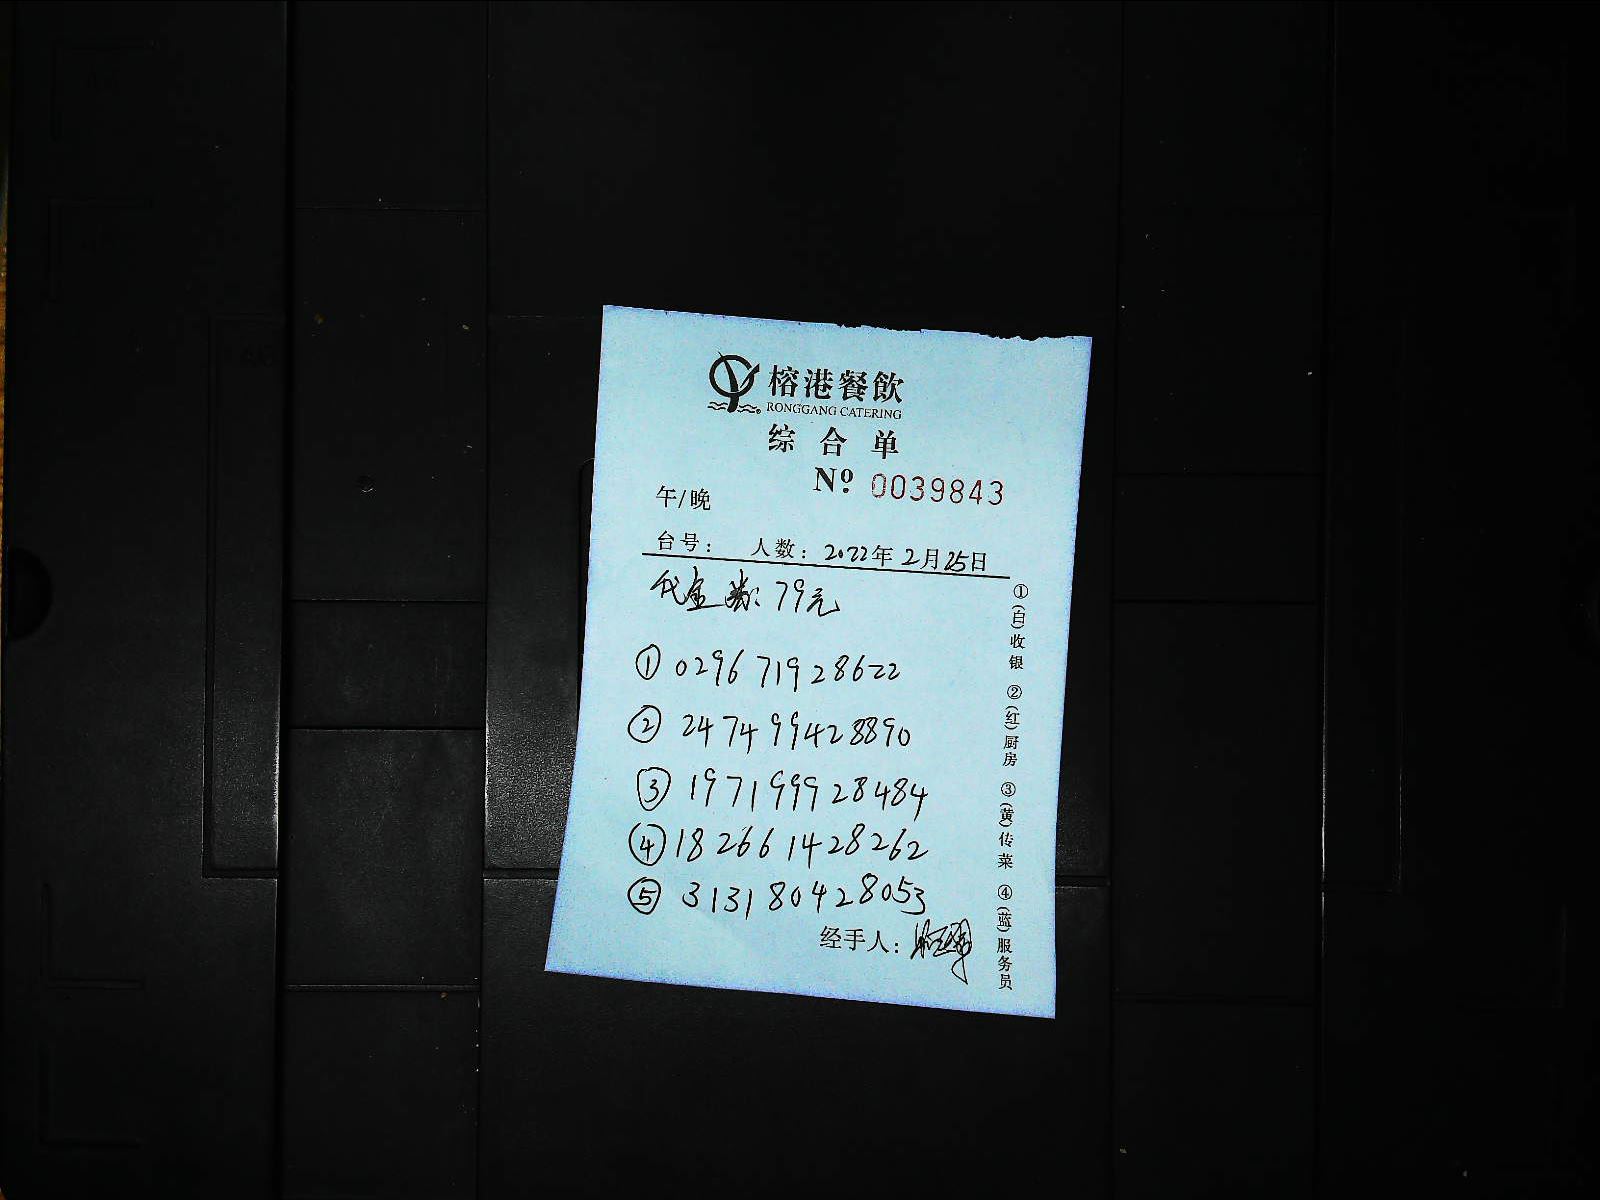 榕港餐飲
RONGGANG CATERING
综合单
Nº 0039843
午/晚
台号： 人数：2022年2月25日
代金券：79元
① 029671928622
② 247499428890
③ 197199928484
④ 182661428262
⑤ 313180428053
经手人：
①(白)收银 ②(红)厨房 ③(黄)传菜 ④(蓝)服务员